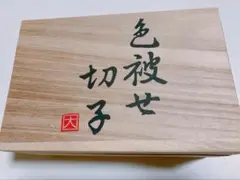 色被せ
切子
大